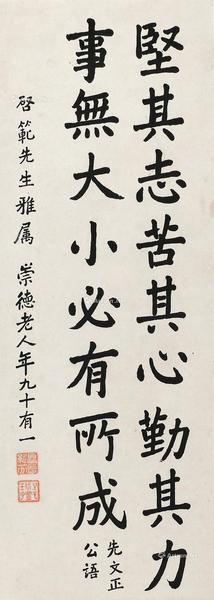 堅其志苦其心勤其力
事無大小必有所成
先文正
公語
啓範先生雅属 崇德老人年九十有一